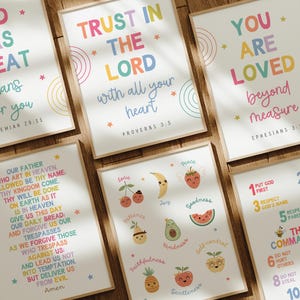 IS
EAT
ans
r you
EMIAH 29:11
TRUST IN
THE
LORD
with all your
heart
PROVERBS 3:5
YOU
ARE
LOVED
beyond
measure
EPHESIANS 3
OUR FATHER
WHO ART IN HEAVEN,
HALLOWED BE THY NAME.
THY KINGDOM COME.
THY WILL BE DONE
ON EARTH AS IT
IS IN HEAVEN.
GIVE US THIS DAY
OUR DAILY BREAD,
AND FORGIVE US OUR
TRESPASSES
AS WE FORGIVE THOSE
WHO TRESPASS
AGAINST US,
AND LEAD US NOT
INTO TEMPTATION
BUT DELIVER US
FROM EVIL.
Amen
Joy
Peace
Love
Patience
Kindness
Goodness
Faithfulness
Gentleness
Self-control
1 PUT GOD
FIRST
3 RESPECT
GOD'S NAME
THE
COMMA
6 DO NOT
8 DO NOT
STEAL
10